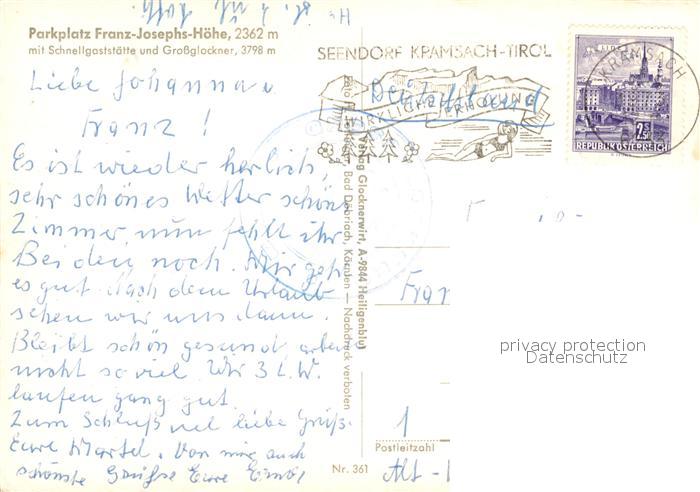 Parkplatz Franz-Josephs-Höhe, 2362 m
mit Schnellgaststätte und Großglockner, 3798 m
Liebe Johanna u
Franz !
Es ist wieder herlich,
sehr schönes Wetter schön
Zimmer, nun fehlt ihr
Beiden noch. Mir geht
es gut. Nach dem Urlaub
sehen wir uns dann.
Bleibt schön gesund arbei
nicht so viel. Wir 3 L.W.
laufen ganz gut
Zum Schluß viel liebe Grüß-
Eure Martel. Von mir auch
schönste Grüße Eure
SEENDORF KRAMSACH-TIROL
WIRKLICHE ERHOLUNG
Deutschland
KRAMSACH
2.50
REPUBLIK ÖSTERREICH
Verlag Glocknerwirt, A-9844 Heiligenblut
Bad Döbriach, Kärnten — Nachdruck verboten
Fran
privacy protection
Datenschutz
1
Postleitzahl
Alt -
Nr. 361